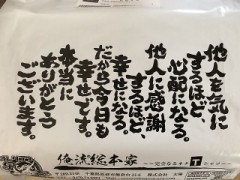 他人を気に
するほど、
心配になる。
他人に感謝
するほど、
幸せになる。
だから今日も
幸せです。
本当に
ありがとう
ございます。
俺流総本家